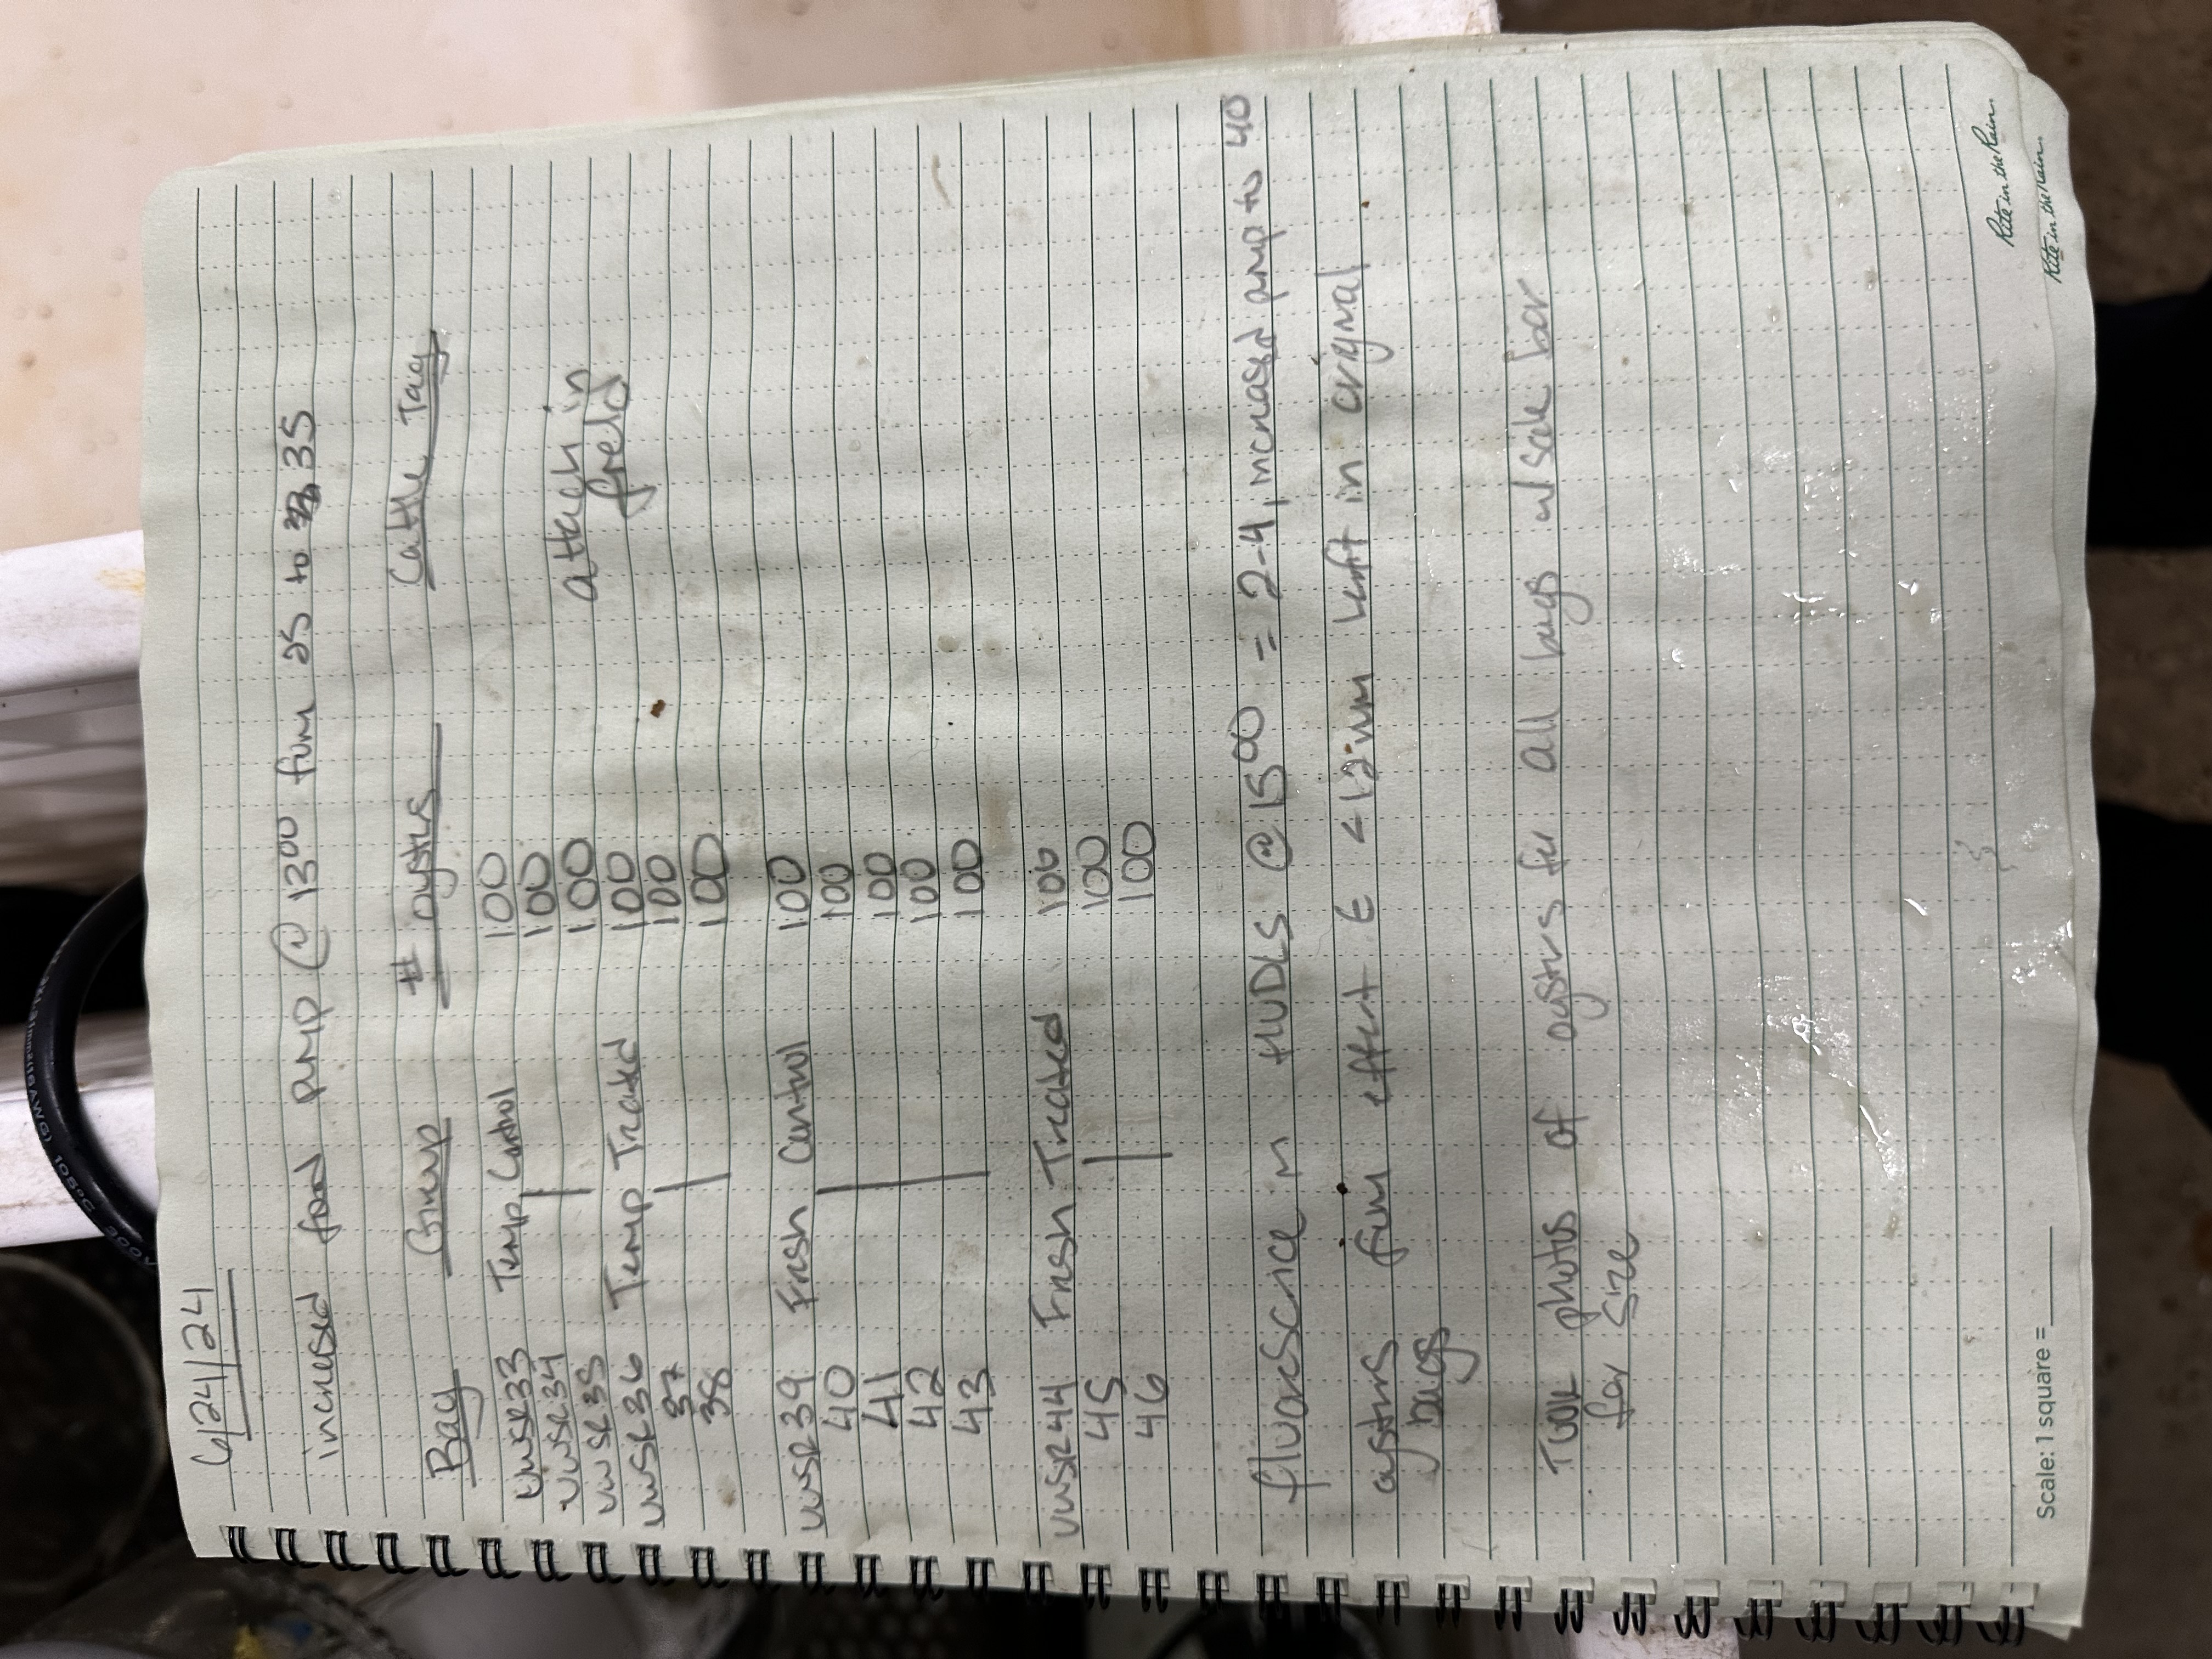 105°C 300V
6/24/24
increased food pump @ 13⁰⁰ from 25 to 35
Bag Group # oysters Cattle Tag
UWSR33 Temp Control 100
UWSR34 100
UWSR35 100
attach in
field
UWSR36 Temp Treated 100
37 100
38 100
UWSR39 Fresh Control 100
40 100
41 100
42 100
43 100
UWSR44 Fresh Treated 100
45 100
46 100
fluorescence in HUDLS @ 15⁰⁰ = 2-4, increased pump to 40
oysters from effort E <12mm left in original
bags
Took photos of oysters for all bags w/ scale bar
for size
Scale: 1 square =
Rite in the Rain.
Rite in the Rain.